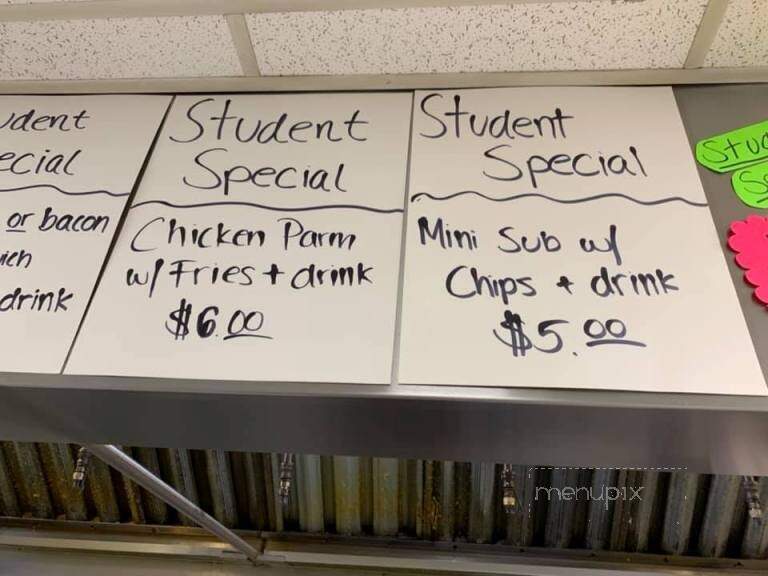 or bacon
drink
Student
Special
Chicken Parm
w/ Fries + drink
$6.00
Student
Special
Mini Sub w/
Chips + drink
$5.00
menupix